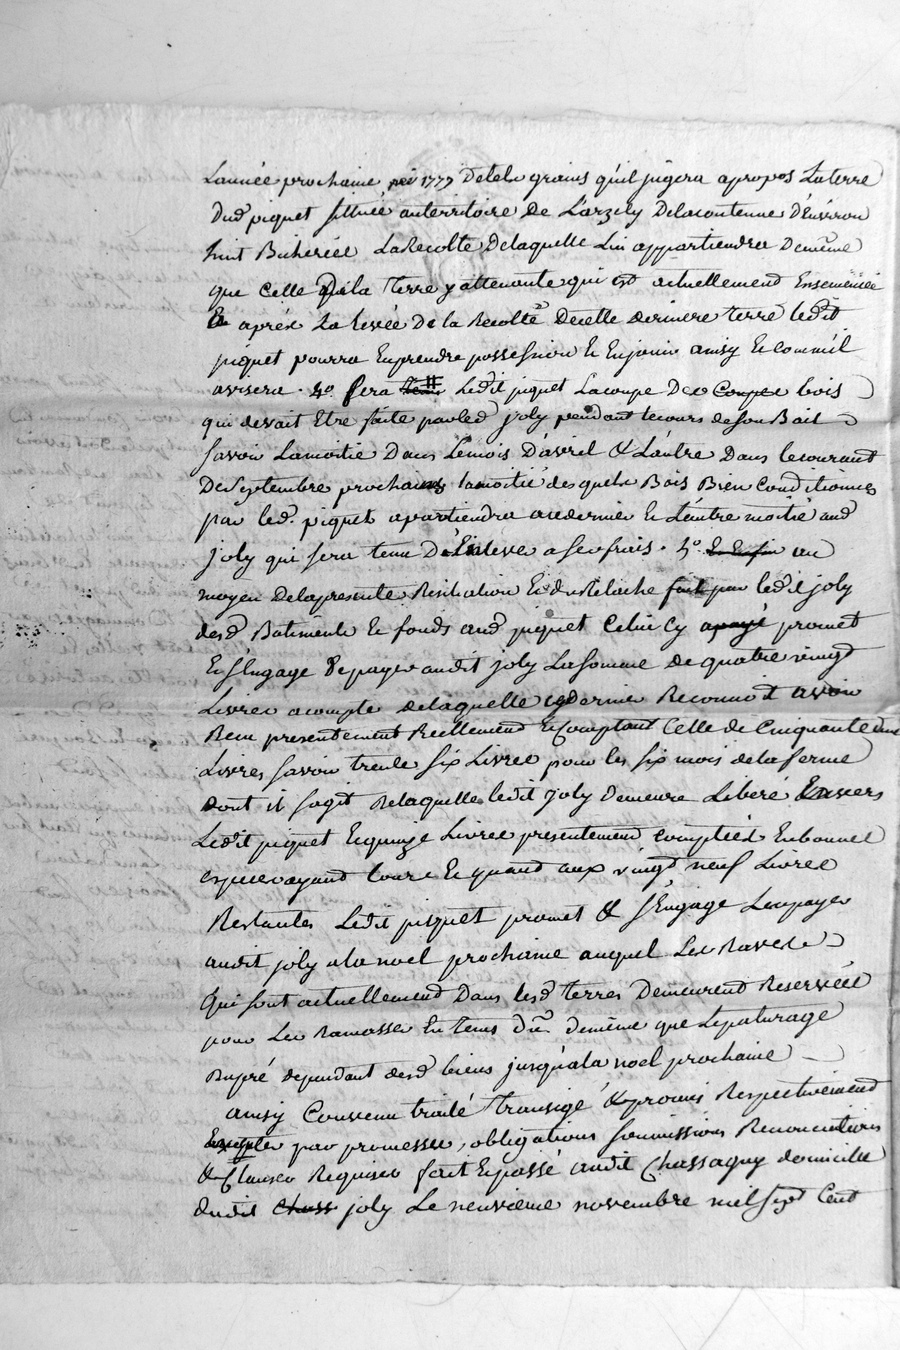 L'année prochaine 1777 de tels grains qu'il jugera apropos La terre
Dud piquet sittuée au territoire de L'arzely De la contenue d'Environ
huit Bicherées La Recolte de laquelle Lui appartiendra De même
que Celle De la terre y attenante qui est actuellement Ensemencée
& aprés La Levée De la Recolte De celle derniere terre ledit
piquet pourra En prendre possession & En jouir ainsy & comm'il
avisera . 4º fera Ledit piquet La coupe Des bois
qui devait Etre faite par led joly pendant le cours de son Bail
savoir La moitié Dans Le mois D'avril & L'autre Dans le courant
De Septembre prochains la moitié desquels Bois Bien Conditionnés
par led. piquet apartiendra a ce dernier & L'autre moitié aud
joly qui sera tenu D'Enlever a ses frais . 5º au
moyen De la presente Resiliation & du Relache fait par ledit joly
desd Batiments & fonds aud piquet Celui Cy promet
& s'Engage De payer audit joly La somme de quatre vingt
Livres a compte de laquelle ce dernier Reconnoit avoir
Recu presentement Reellement & Comptant Celle de Cinquante une
Livres savoir trente six Livres pour les six mois de la ferme
dont il s'agit De laquelle ledit joly Demeure Libéré Envers
Ledit piquet & quinze Livres presentement comptées En bonnes
especes ayant Cours & quand aux vingt neuf Livres
Restantes Ledit piquet promet & s'Engage Les payer
audit joly a la noel prochaine auquel Les Raves
Qui sont actuellement Dans lesd terres Demeurent Reservées
pour Les Ramasser En tems Du de même que Le paturage
Du pré dependant desd biens jusqu'a la noel prochaine
ainsy Convenu traité transigé & promis Respectivement
par promesses, obligations soumissions Renonciations
& Clauses Requises fait & passé audit Chassagny domicille
dudit joly Le neuvieme novembre mil sept Cent